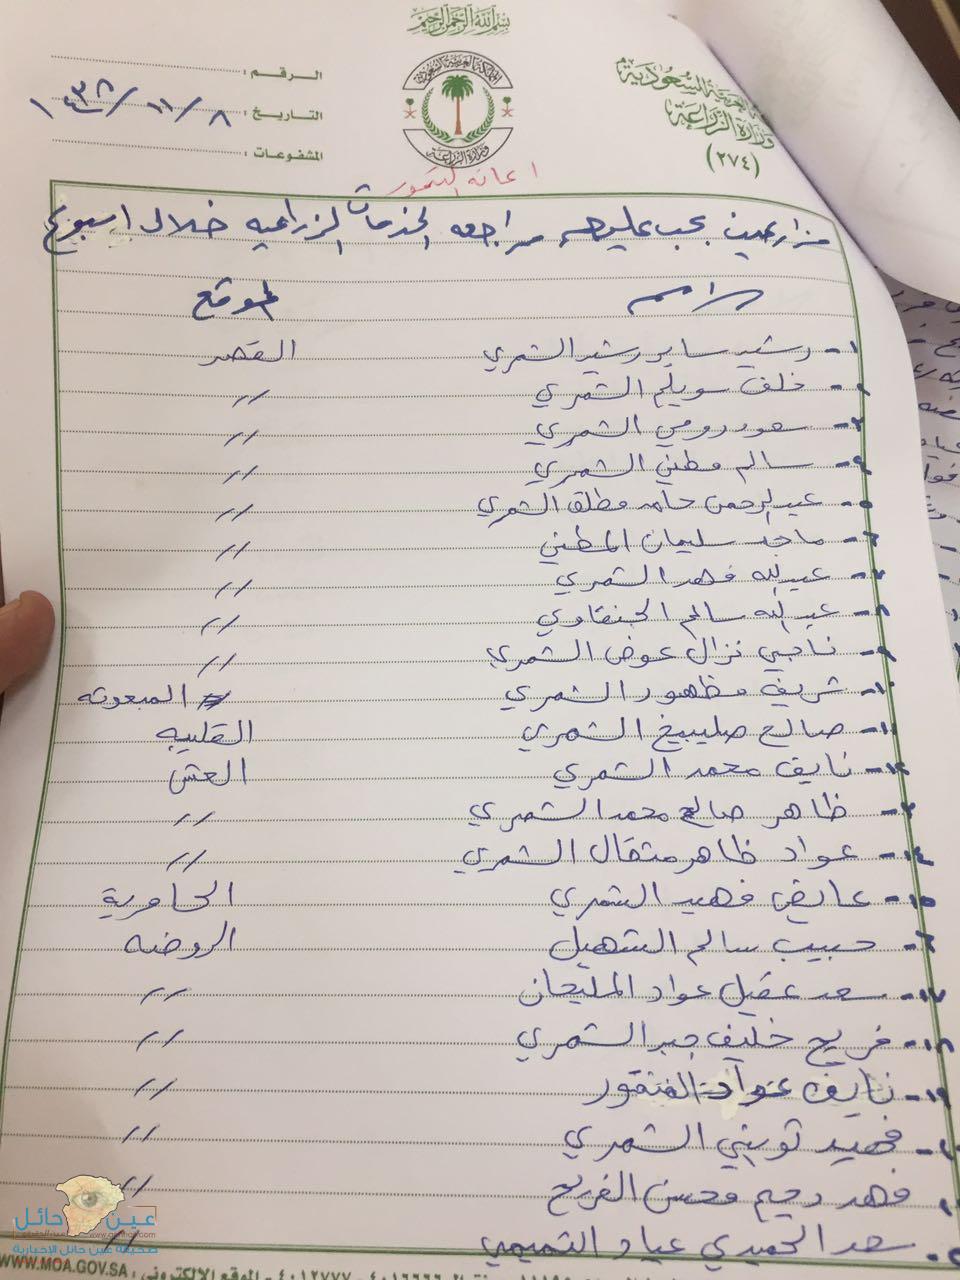 بسم الله الرحمن الرحيم
المملكة العربية السعودية
وزارة الزراعة
(٢٧٤)
الرقم :
التاريخ : ٨ / ١١ / ١٤٣٨
المشفوعات :
اعانه التمور
مزارعين يجب عليهم مراجعه الخدمات الزراعيه خلال اسبوع
الاسم الموقع
١- رشيد ساير رشيد الشمري القصر
٢- خلف سويلم الشمري //
٣- سعود رومي الشمري //
٤- سالم مطني الشمري //
٥- عبدالرحمن حامد مطلق الشمري //
٦- ماجد سليمان المطني //
٧- عبدالله فهد الشمري //
٨- عبدالله سالم الجنفاوي //
٩- ناجي نزال عوض الشمري //
١٠- شريف مظهور الشمري المبعوثه
١١- صالح صليبيخ الشمري القليبه
١٢- نايف محمد الشمري العش
١٣- ظاهر صالح محمد الشمري //
١٤- عواد ظاهر مثقال الشمري //
١٥- عايض فهيد الشمري الحامرية
١٦- حبيب سالم السهيل الروضه
١٧- سعد عقيل عواد المليحان //
١٨- فريح خليف جبر الشمري //
١٩- نايف عواد //
٢٠- فهيد ثويني الشمري //
٢١- فهد دحيم محسن الفريح //
٢٢- سعد الحميدي عياد التميمي
عين حائل
صحيفة عين حائل الإخبارية
الموقع الإلكتروني : WWW.MOA.GOV.SA - ٤٠١٢٧٧٧ - ٤٠١٦٦٦٦